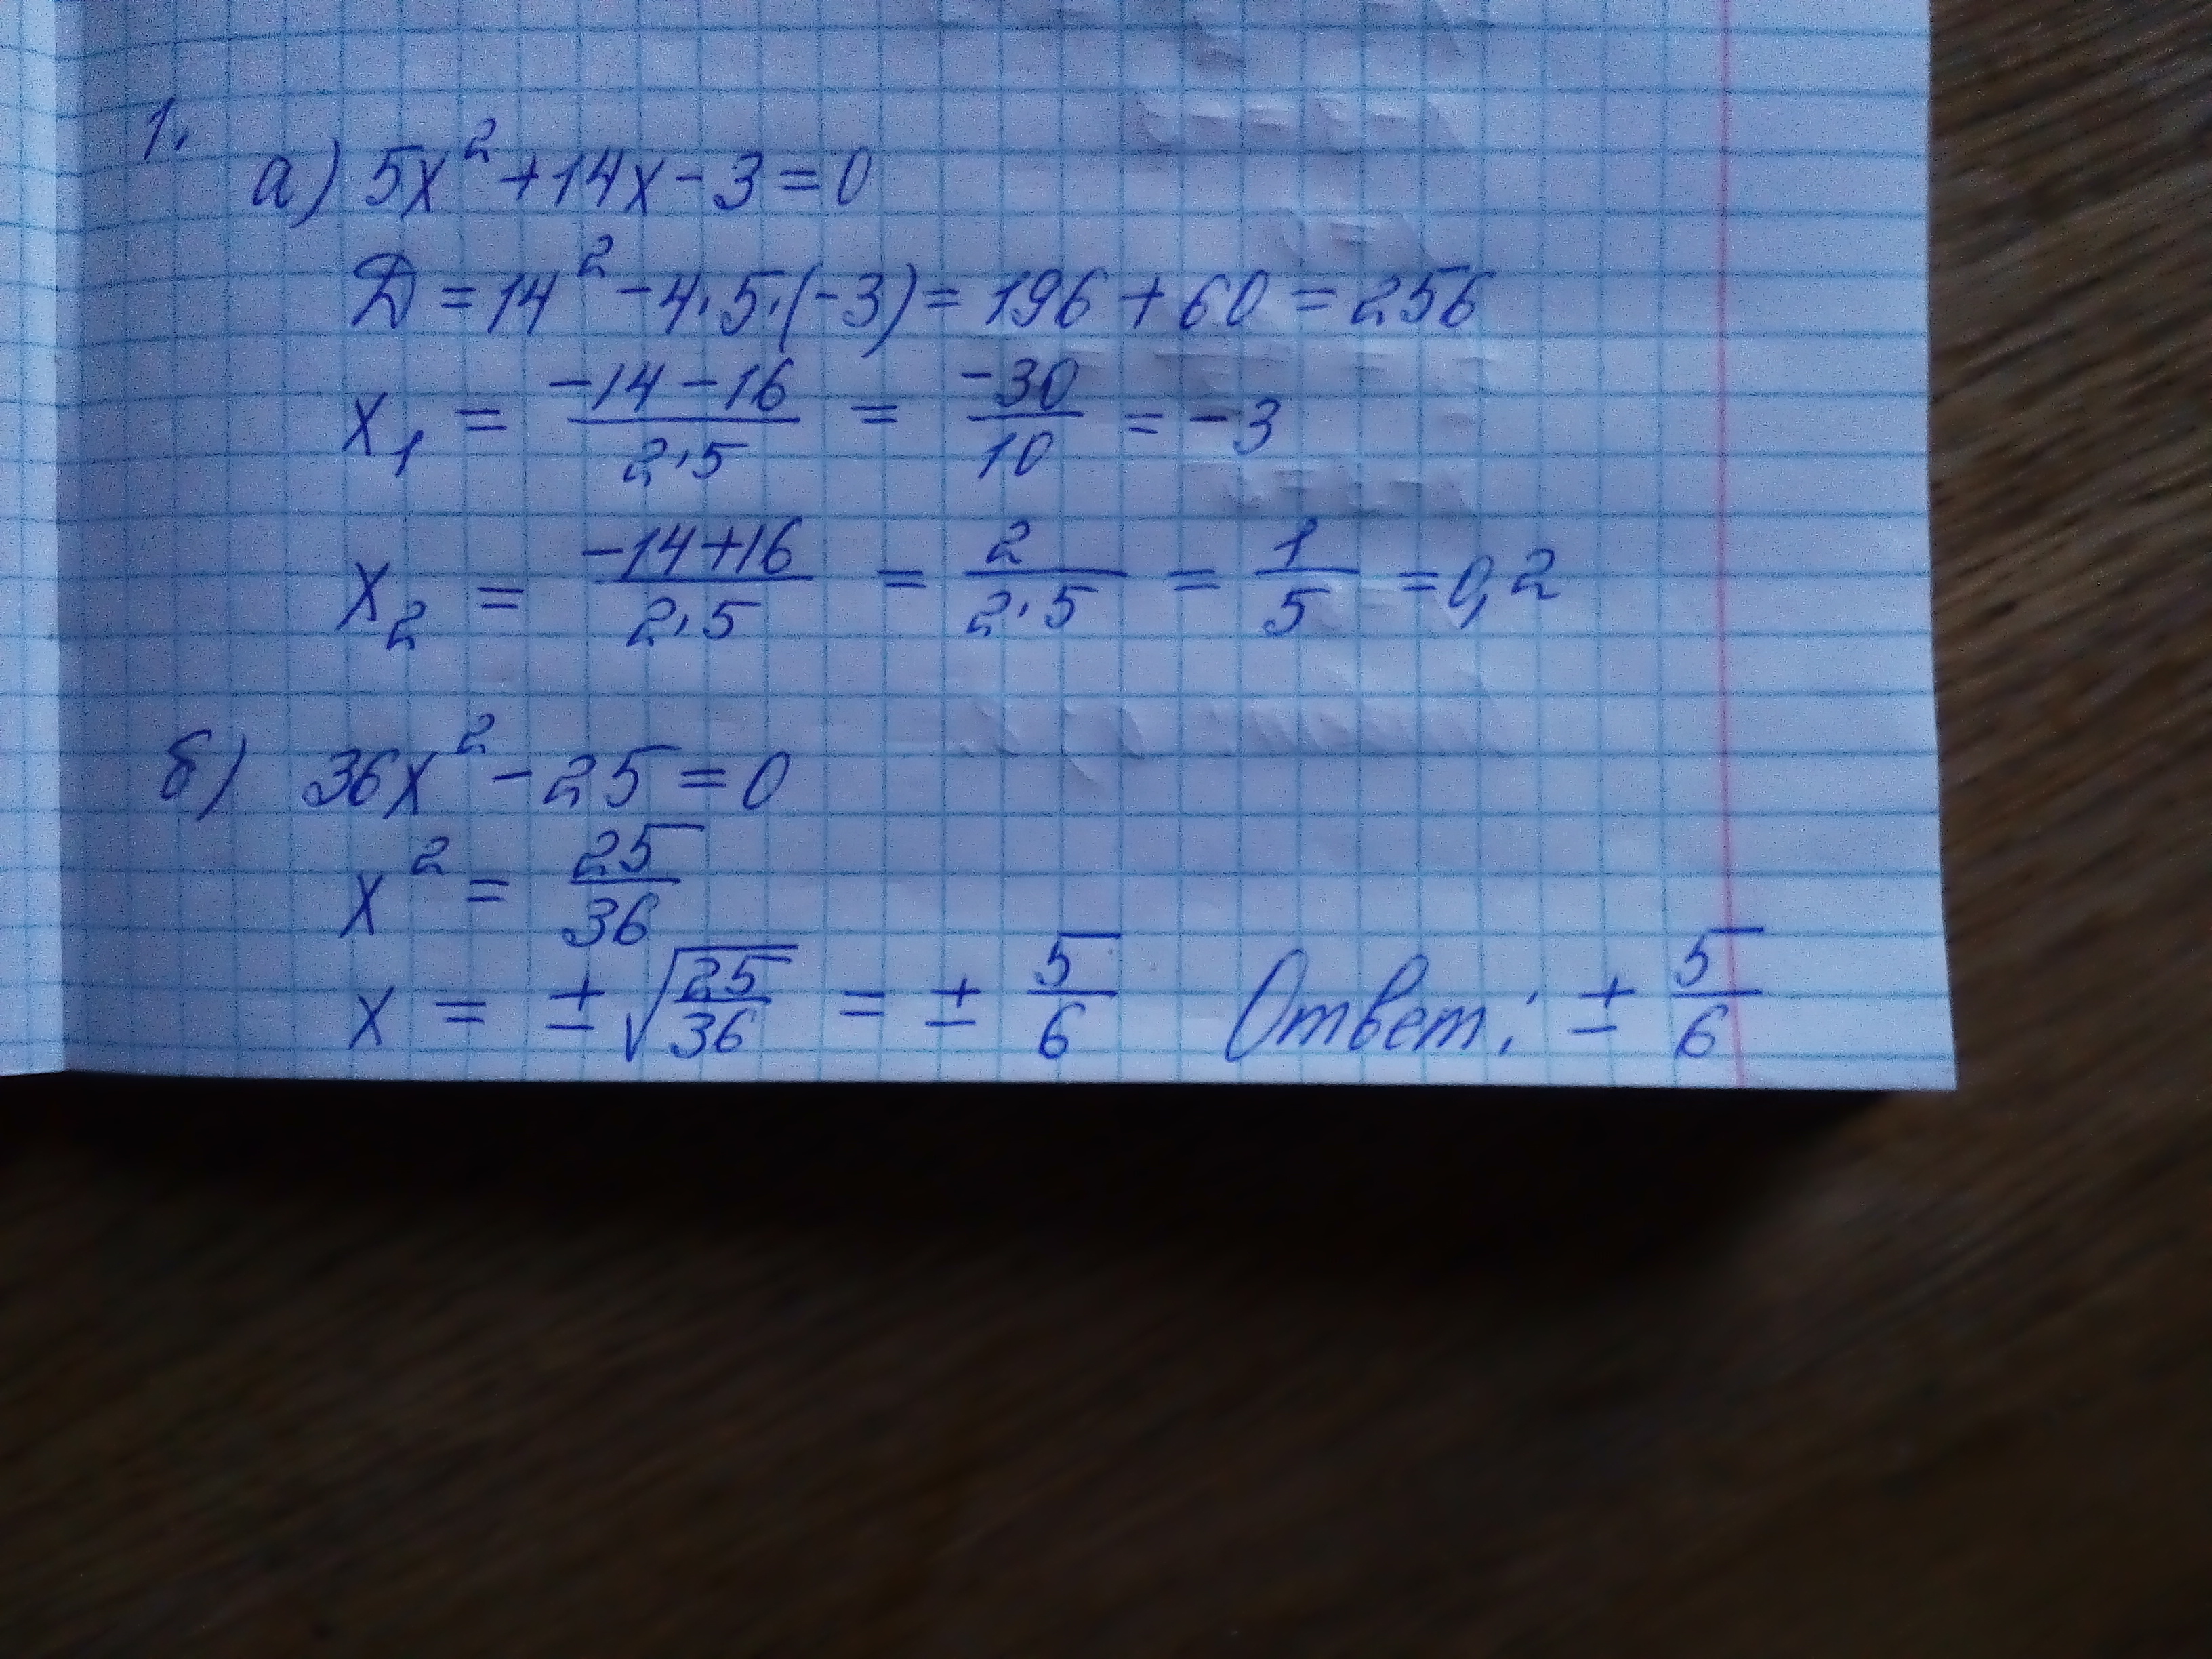 1.
а) 5x² + 14x - 3 = 0
D = 14² - 4·5·(-3) = 196 + 60 = 256
x₁ = (-14 - 16)/(2·5) = -30/10 = -3
x₂ = (-14+16)/(2·5) = 2/(2·5) = 1/5 = 0,2
б) 36x² - 25 = 0
x² = 25/36
x = ± √(25/36) = ± 5/6 Ответ: ± 5/6